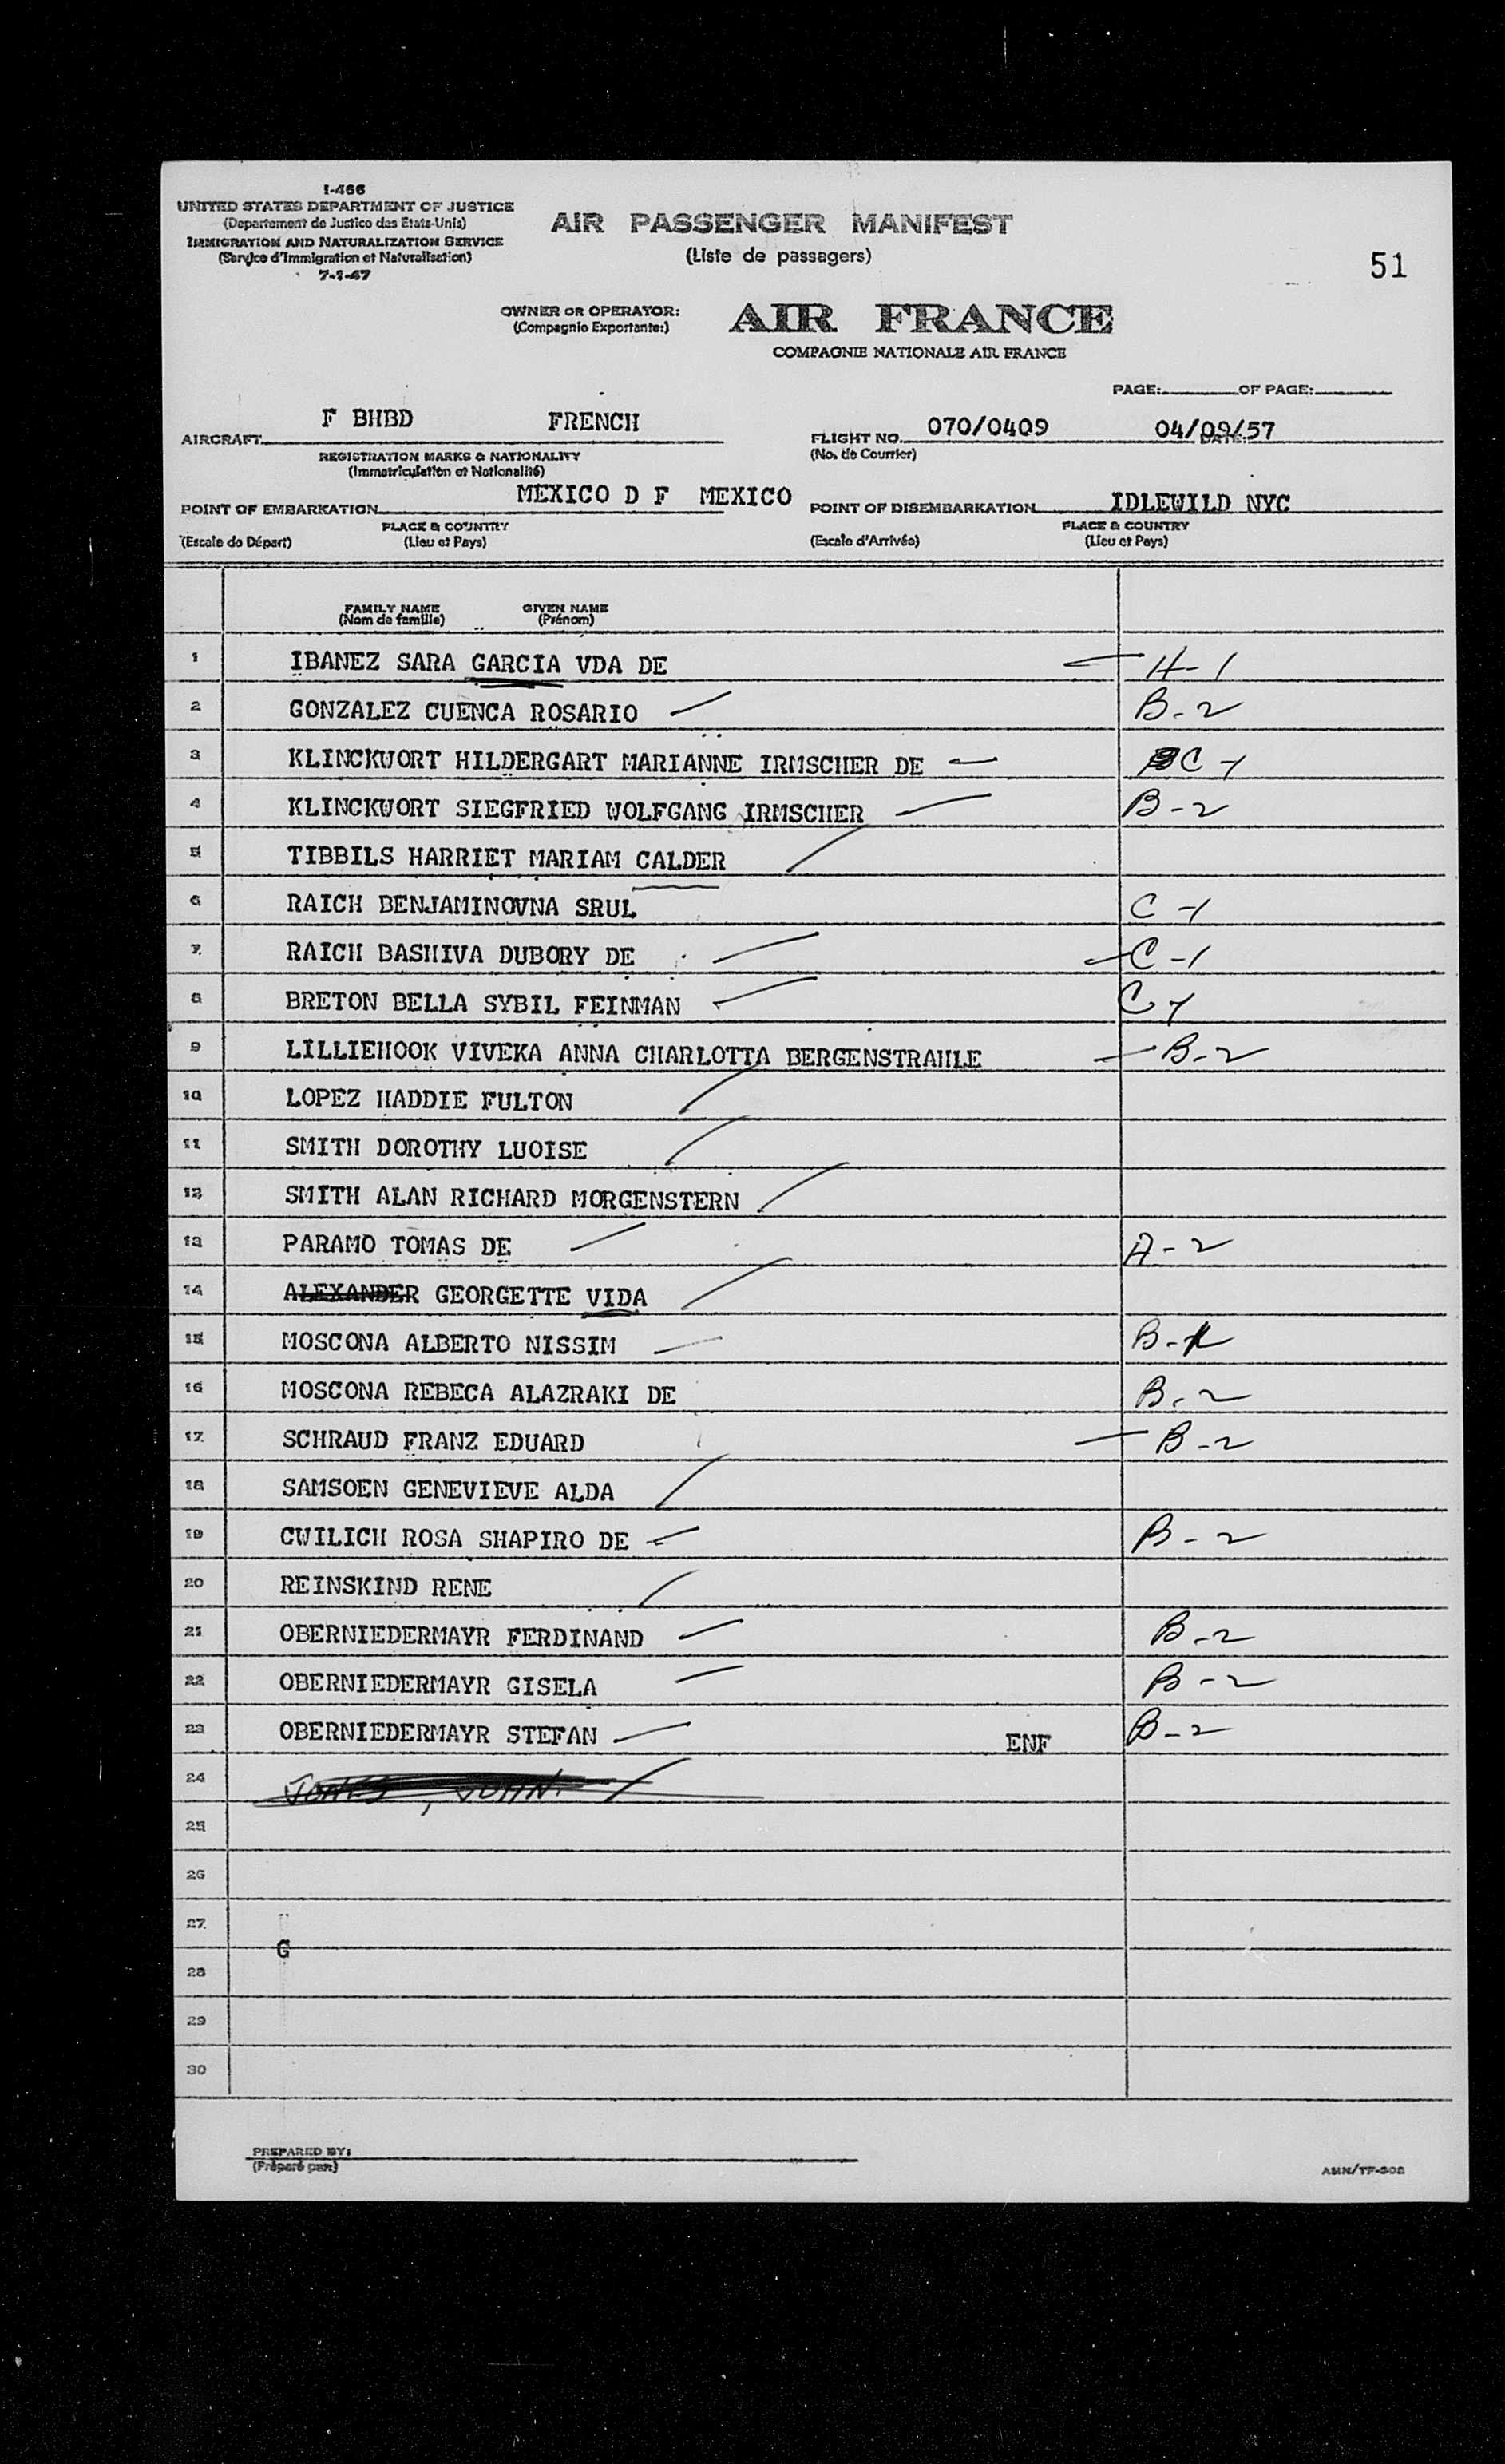 I-466
UNITED STATES DEPARTMENT OF JUSTICE
(Departement de Justice des Etats-Unis)
IMMIGRATION AND NATURALIZATION SERVICE
(Service d'Immigration et Naturalisation)
7-1-47
AIR PASSENGER MANIFEST
(Liste de passagers)
51
OWNER OR OPERATOR: AIR FRANCE
(Compagnie Exportante:)
COMPAGNIE NATIONALE AIR FRANCE
PAGE: OF PAGE:
AIRCRAFT F BHBD FRENCH FLIGHT NO. 070/0409 DATE: 04/09/57
REGISTRATION MARKS & NATIONALITY (No. de Courrier)
(Immatriculation et Nationalité)
POINT OF EMBARKATION MEXICO D F MEXICO POINT OF DISEMBARKATION IDLEWILD NYC
PLACE & COUNTRY PLACE & COUNTRY
(Escale de Départ) (Lieu et Pays) (Escale d'Arrivée) (Lieu et Pays)
FAMILY NAME GIVEN NAME
(Nom de famille) (Prénom)
1 IBANEZ SARA GARCIA VDA DE H-1
2 GONZALEZ CUENCA ROSARIO B-2
3 KLINCKWORT HILDERGART MARIANNE IRMSCHER DE C-1
4 KLINCKWORT SIEGFRIED WOLFGANG IRMSCHER B-2
5 TIBBILS HARRIET MARIAM CALDER
6 RAICH BENJAMINOVNA SRUL C-1
7 RAICH BASHIVA DUBORY DE C-1
8 BRETON BELLA SYBIL FEINMAN C-1
9 LILLIEHOOK VIVEKA ANNA CHARLOTTA BERGENSTRAHLE B-2
10 LOPEZ HADDIE FULTON
11 SMITH DOROTHY LUOISE
12 SMITH ALAN RICHARD MORGENSTERN
13 PARAMO TOMAS DE A-2
14 ALEXANDER GEORGETTE VIDA
15 MOSCONA ALBERTO NISSIM B-1
16 MOSCONA REBECA ALAZRAKI DE B-2
17 SCHRAUD FRANZ EDUARD B-2
18 SAMSOEN GENEVIEVE ALDA
19 CWILICH ROSA SHAPIRO DE B-2
20 REINSKIND RENE
21 OBERNIEDERMAYR FERDINAND B-2
22 OBERNIEDERMAYR GISELA B-2
23 OBERNIEDERMAYR STEFAN ENF B-2
24 , JOHN
25
26
27
G
28
29
30
PREPARED BY:
(Préparé par:)